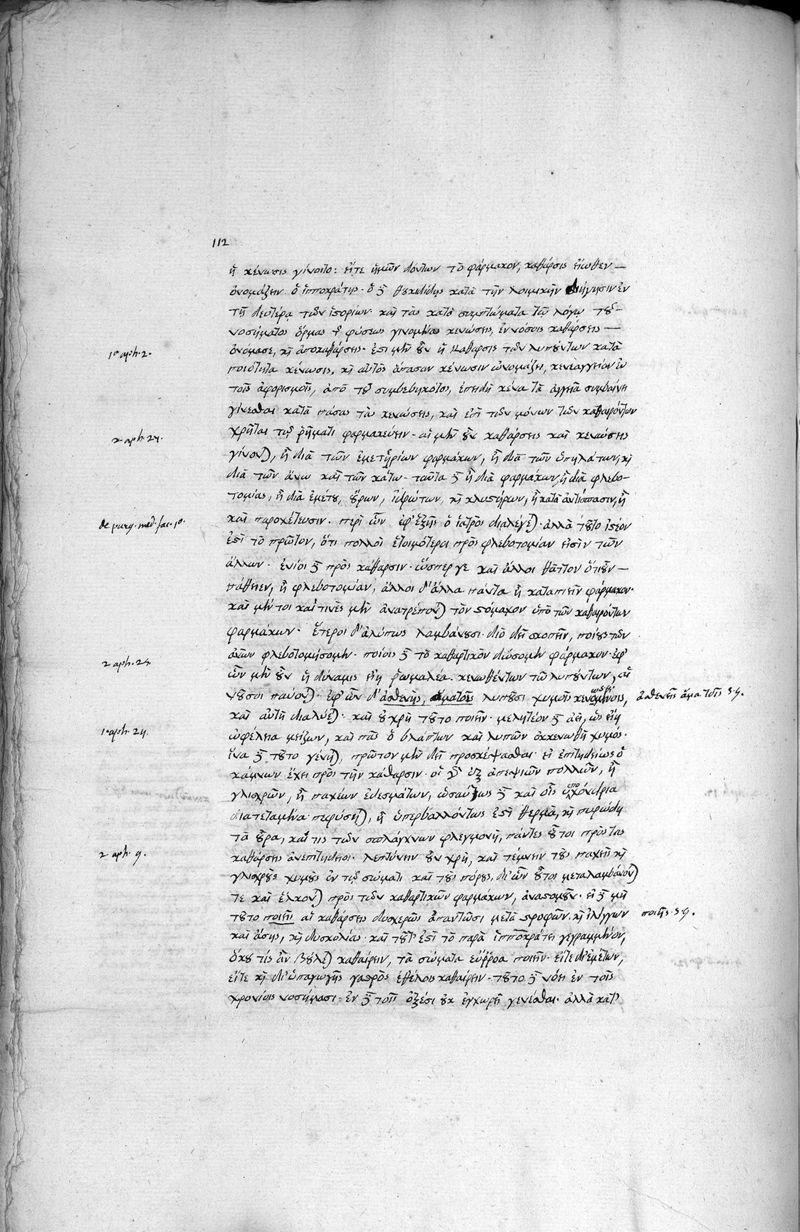 112
ἡ κένωσις γίνοιτο: εἴτε ἡμῶν δόντων τὸ φάρμακον, κάθαρσις εἴωθεν —
ὀνομάζειν ὁ ἱπποκράτης· ὁ δὲ θουκιδίδης κατὰ τὴν λοιμικὴν διήγησιν ἐν
τῇ δευτέρα τῶν ἱστοριῶν καὶ τὰς κατὰ συμπτώματα τῶ λόγω τοῦ —
νοσήματος ὁρμαῖς φύσεως γινομένας κενώσεις, ἐν νόσοις καθάρσεις —
1º aph. 2.
ὀνόμασε, καὶ ἀποκαθάρσεις· ἔστι μὲν οὖν ἡ κάθαρσις τῶν λυπούντων κατὰ
ποιότητα κένωσις, καὶ αὐτὸς ἅπασαν κένωσιν ὠνομάζει, κενεαγγείην ἐν
τοῖς ἀφορισμοῖς, ἀπὸ τοῦ συμβεβηκότος, ἐπειδὴ κενὰ τὰ ἀγγεῖα συμβαίνει
γίνεσθαι κατὰ πάσας τὰς κενώσεις, καὶ ἐπὶ τῶν μόνων τῶν καθαιρόντων
2 aph. 24.
χρῆται τῷ ῥήματι φαρμακεύειν· αἱ μὲν οὖν καθάρσεις καὶ κενώσεις
γίνονται, ἢ διὰ τῶν ἐμετηρίων φαρμάκων, ἢ διὰ τῶν ὑπηλάτων, καὶ
διὰ τῶν ἄνω καὶ τῶν κάτω· ταῦτα δὲ ἢ διὰ φαρμάκων, ἢ διὰ φλεβο-
τομίας, ἢ διὰ ἐμέτου, οὔρων, ἱδρώτων, καὶ κλυστήρων, ἢ κατὰ ἀντίσπασιν, ἢ
de purg. med. fac. 1º.
καὶ παροχέτευσιν. περὶ ὧν ἐφ' ἑξῆς ὁ ἰατρὸς διαλέγεται· ἀλλὰ τοῦτο ἰστέον
ἐστὶ τὸ πρῶτον, ὅτι πολλοὶ ἑτοιμότεροι πρὸς φλεβοτομίαν εἰσὶν τῶν
ἄλλων· ἔνιοι δὲ πρὸς κάθαρσιν· ὥσπερ γε καὶ ἄλλοι θᾶττον ὁτιοῦν —
πάθοιεν, ἢ φλεβοτομίαν, ἄλλοι δ' ἄλλα πάντα ἢ καταπιεῖν φάρμακον·
καὶ μέν τοι καὶ τινὲς μὲν ἀνατρέπονται τὸν στόμαχον ὑπὸ τῶν καθαιρόντων
φαρμάκων· ἕτεροι δ' ἀλύπως λαμβάνουσι· διὸ δεῖ σκοπεῖν, ποίους τῶν
2 aph. 28.
ἀνῶν φλεβοτομήσομεν· ποίοις δὲ τὸ καθαρτικὸν δώσομεν φάρμακον· ἐφ'
ὧν μὲν οὖν ἡ δύναμις εἴη ῥωμαλέα, κενωθέντων τῶν λυπούντων, αἱ
νοῦσοι παύονται· ἐφ' ὧν δ' ἀσθενὴς, λυποῦσι χυμοῖς κενουμένοις, ἀσθενεῖ ἅμα τοῖς γρ.
καὶ αὐτὴ διαλύεται· καὶ οὐ χρὴ τοῦτο ποιεῖν· μελητέον δὲ ἀεὶ, ὡς εἴη
1º aph. 24.
ὠφέλεια μείζων, καὶ πῶς ὁ βλάπτων καὶ λυπῶν ἐκκενωθῇ χυμός·
ἵνα δὲ τοῦτο γένηται, πρῶτον μὲν δεῖ προσκέψασθαι· εἰ ἐπιτηδείως ὁ
κάμνων ἔχει πρὸς τὴν κάθαρσιν· οἱ γὰρ ἐξ ἀπεψιῶν πολλῶν, ἢ
γλισχρῶν, ἢ παχέων ἐδεσμάτων, ὡσαύτως δὲ καὶ οἷς ὑποχόνδρια
διατεταμένα πεφύσηται, ἢ ὑπερβαλλόντως ἐστὶ θερμὰ, καὶ πυρώδη
τὰ οὖρα, καί τις τῶν σπλάγχνων φλεγμονὴ, πάντες οὗτοι πρὸς τὰς
2 aph. 9.
καθάρσεις ἀνεπιτήδειοι. λεπτύνειν οὖν χρὴ, καὶ τέμνειν τοὺς παχεῖς καὶ
γλισχροὺς χυμοὺς ἐν τῷ σώματι καὶ τοὺς πόρους, δι' ὧν οὗτοι μεταλαμβάνονται
τε καὶ ἕλκονται πρὸς τῶν καθαρτικῶν φαρμάκων, ἀναστομοῦν· εἰ δὲ μὴ
τοῦτο ποιεῖν αἱ καθάρσεις δυσχερῶς ἀπαντῶσι μετὰ στροφῶν, καὶ ἰλίγγων ποιῇς γρ.
καὶ ἄσης, καὶ δυσκολίας· καὶ τοῦτ' ἐστὶ τὸ παρὰ ἱπποκράτει γεγραμμένον,
ὅκου τις ἂν βούλεται καθαίρειν, τὰ σώματα εὔρροα ποιεῖν· εἴτε δι' ἐμέτων,
εἴτε καὶ δι' ὑπαγωγῆς γαστρὸς ἐθέλοι καθαίρειν· τοῦτο δὲ νόει ἐν τοῖς
χρονίοις νοσήμασι· ἐν δὲ τοῖς ὀξέσι οὐκ ἐγχωρεῖ γενέσθαι· ἀλλὰ κατ'